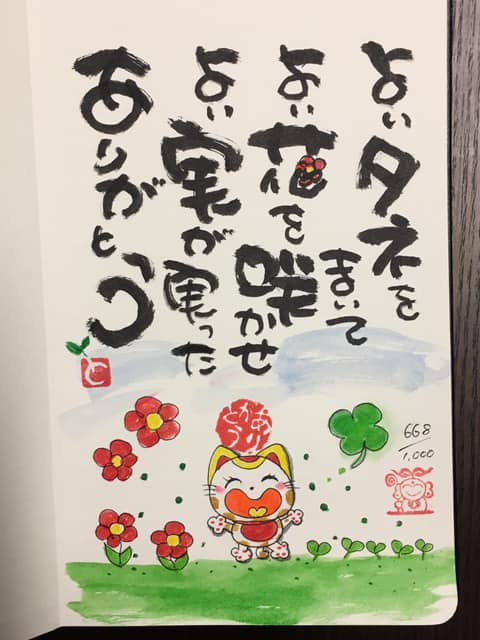 よいタネを
まいて
よい花を
咲かせ
よい
実が実った
ありがとう
668/1,000